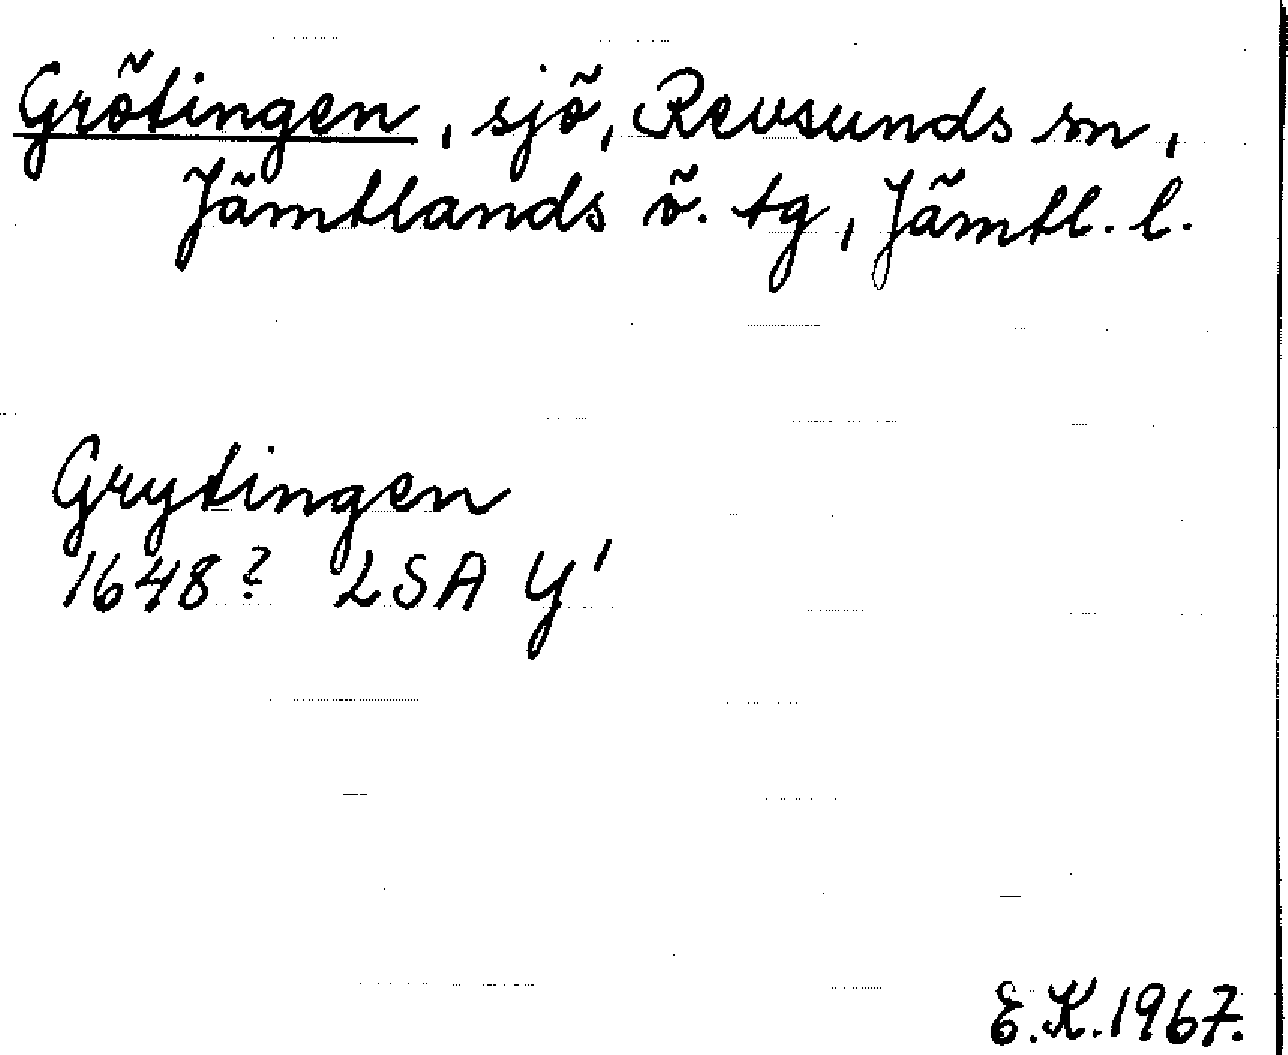 Grötingen, sjö, Revsunds sn,
Jämtlands ö. tg, Jämtl. l.
Grytingen
1648? LSA Y'
E.K.1967.